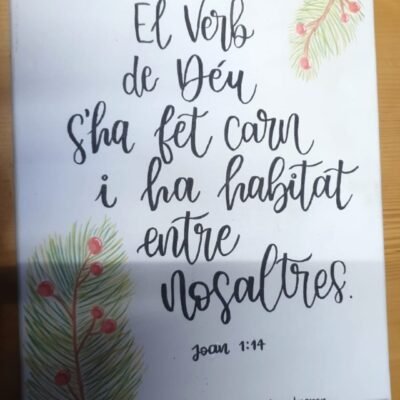 El Verb
de Déu
s'ha fet carn
i ha habitat
entre
nosaltres.
Joan 1:14